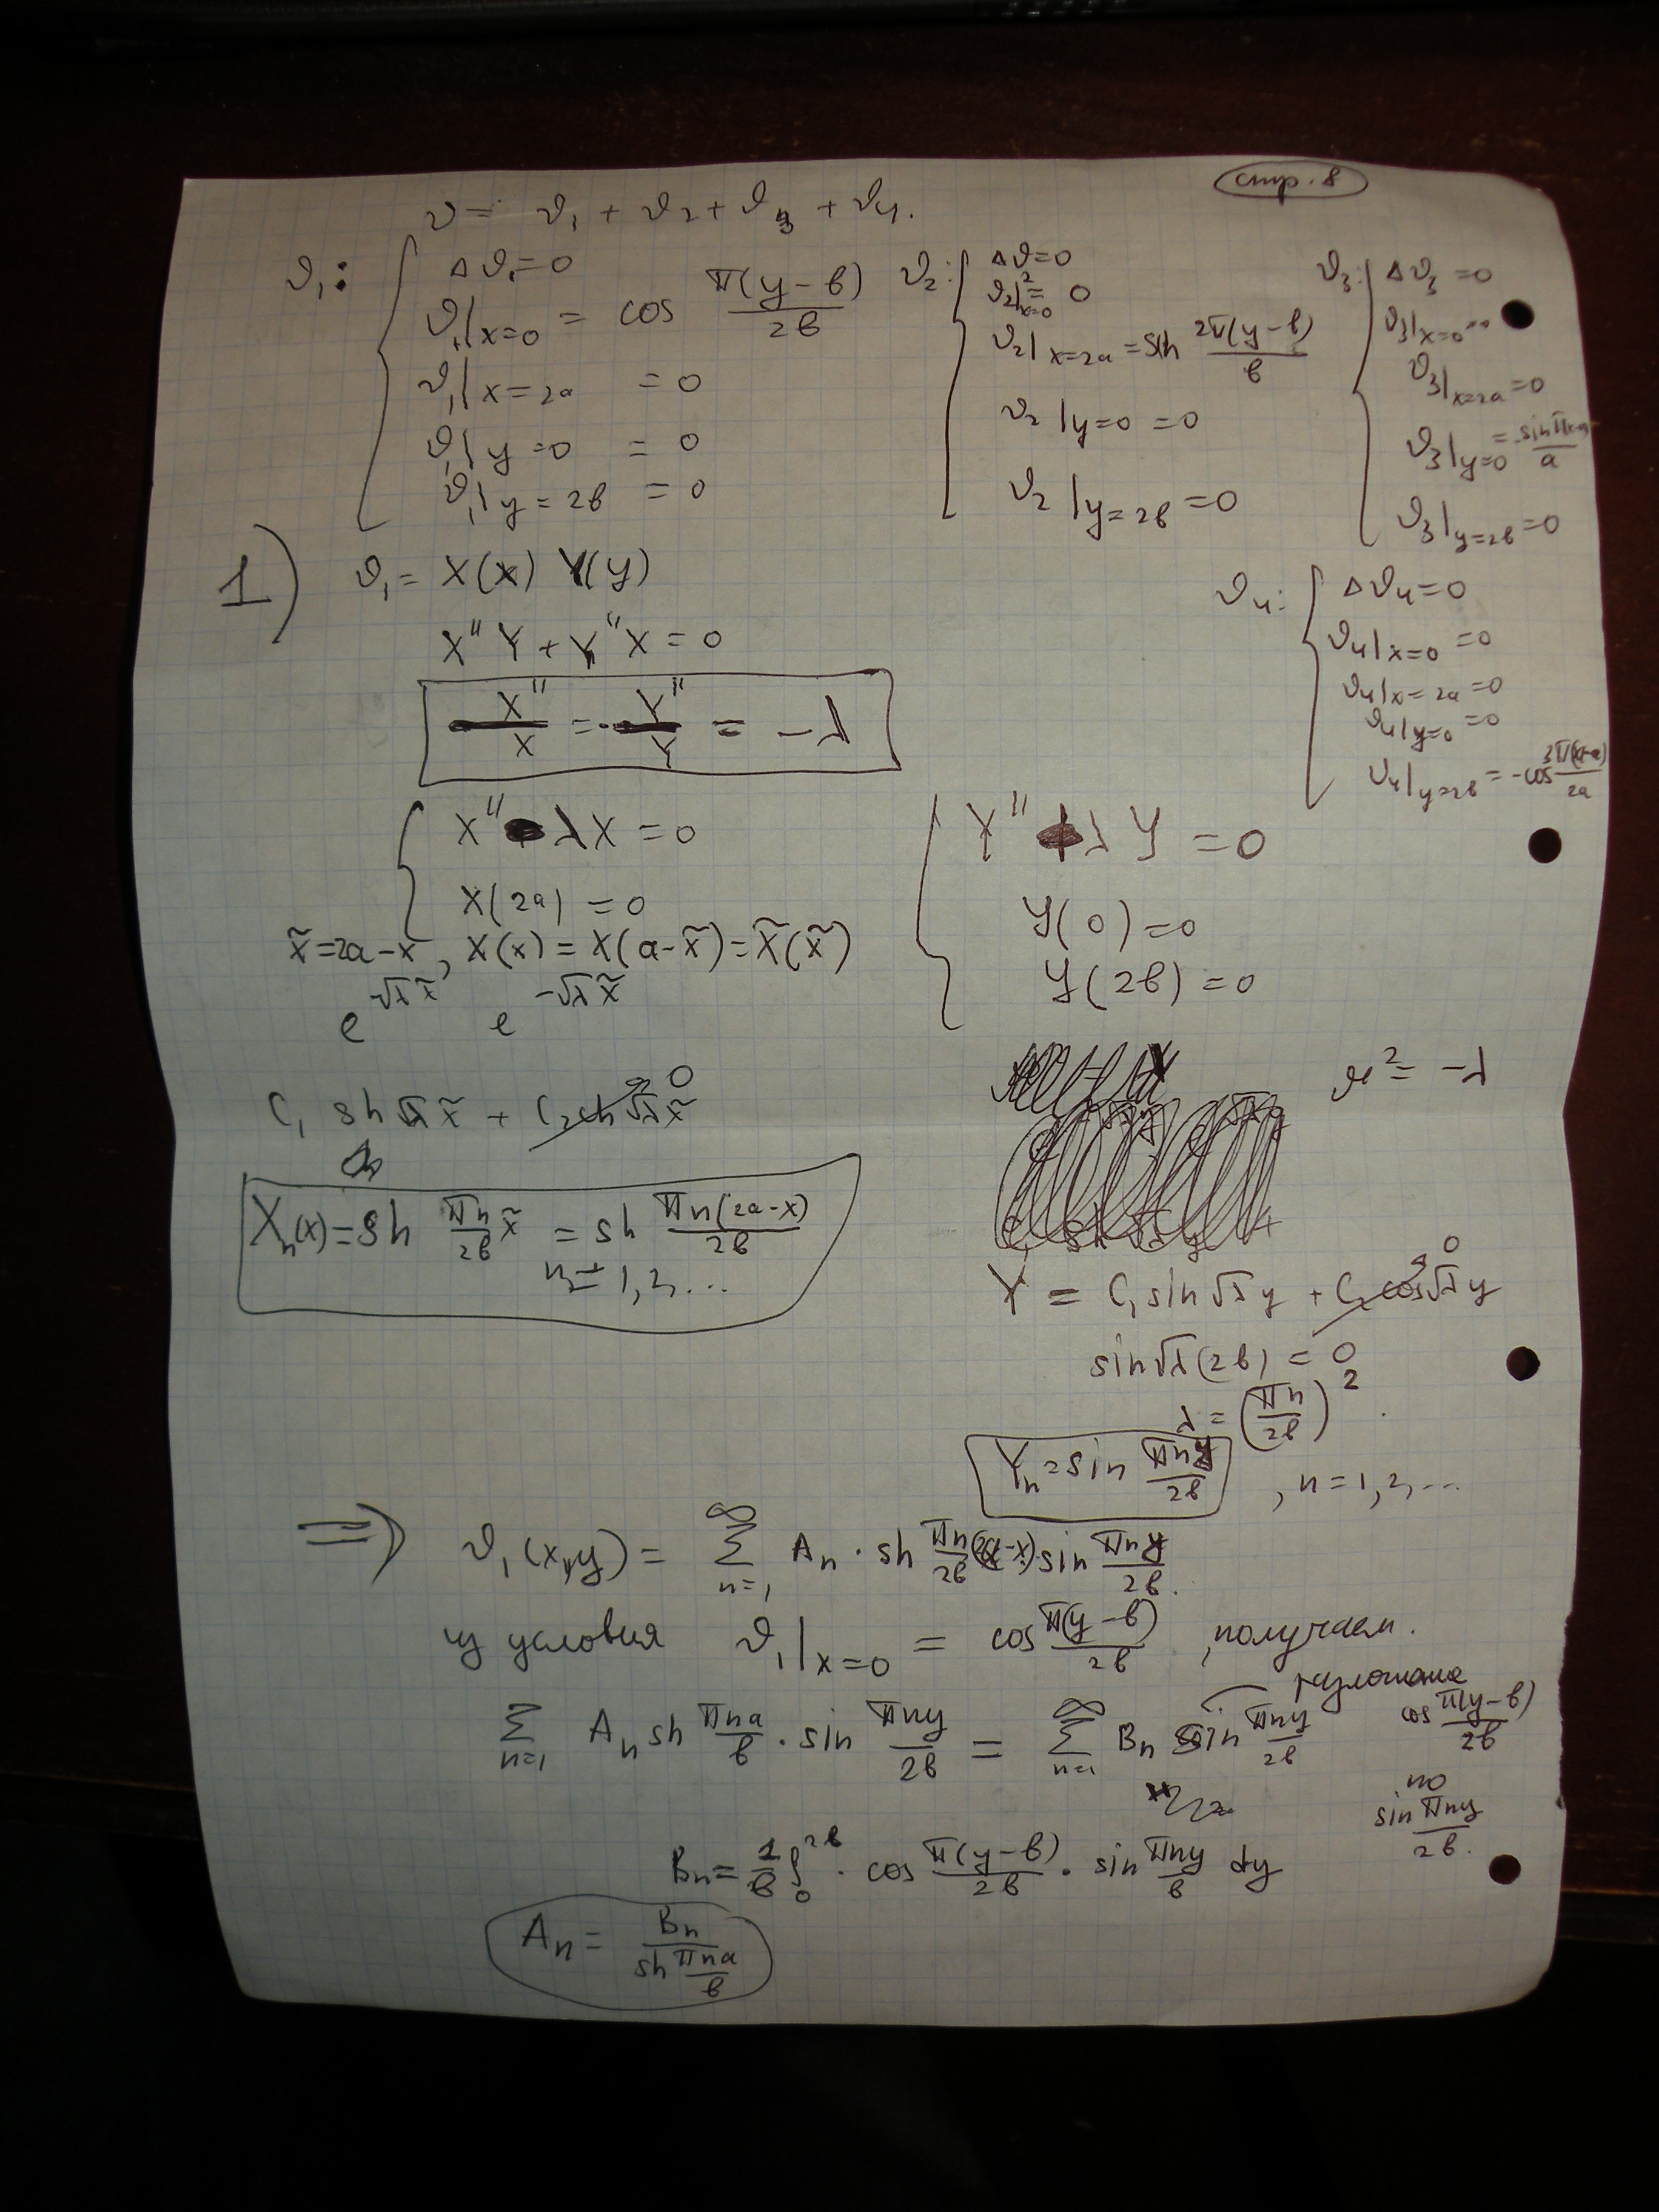 стр. 8
υ = ϑ₁ + ϑ₂ + ϑ₃ + ϑ₄.
ϑ₁: { Δϑ₁ = 0
ϑ₁|x=0 = cos π(y−в)/2в
ϑ₁|x=2a = 0
ϑ₁|y=0 = 0
ϑ₁|y=2в = 0
ϑ₂: { Δϑ₂ = 0
ϑ₂|x=0 = 0
ϑ₂|x=2a = sin 2π(y−в)/в
ϑ₂|y=0 = 0
ϑ₂|y=2в = 0
ϑ₃: { Δϑ₃ = 0
ϑ₃|x=0 = 0
ϑ₃|x=2a = 0
ϑ₃|y=0 =
ϑ₃|y=2в = 0
ϑ₄: { Δϑ₄ = 0
ϑ₄|x=0 = 0
ϑ₄|x=2a = 0
ϑ₄|y=0 = 0
ϑ₄|y=2в = −cos 3π(x−a)/2a
1) ϑ₁ = X(x) Y(y)
X″Y + Y″X = 0
X″/X = −Y″/Y = −λ
{ X″ λX = 0
X(2a) = 0
x̃ = 2a−x, X(x) = X(a−x̃) = X̃(x̃)
e^(√λ x̃) e^(−√λ x̃)
C₁ sh √λ x̃ + C₂ ch √λ x̃ 0
Xₙ(x) = sh πn/2в x̃ = sh πn(2a−x)/2в
n = 1, 2, ...
{ Y″ + λ Y = 0
Y(0) = 0
Y(2в) = 0
æ² = −λ
Y = C₁ sin √λ y + C₂ cos √λ y 0
sin √λ (2в) = 0
λ = (πn/2в)²
Yₙ = sin πny/2в , n = 1, 2, ...
⇒ ϑ₁(x,y) = ∑ₙ₌₁^∞ Aₙ · sh πn/2в (2a−x) · sin πny/2в.
из условия ϑ₁|x=0 = cos π(y−в)/2в , получаем.
∑ₙ₌₁ Aₙ sh πna/в · sin πny/2в = ∑ₙ₌₁^∞ Bₙ sin πny/2в
разложение
cos π(y−в)/2в
по
sin πny/2в.
Bₙ = 1/в ∫₀^2в · cos π(y−в)/2в · sin πny/в dy
Aₙ = Bₙ / sh πna/в